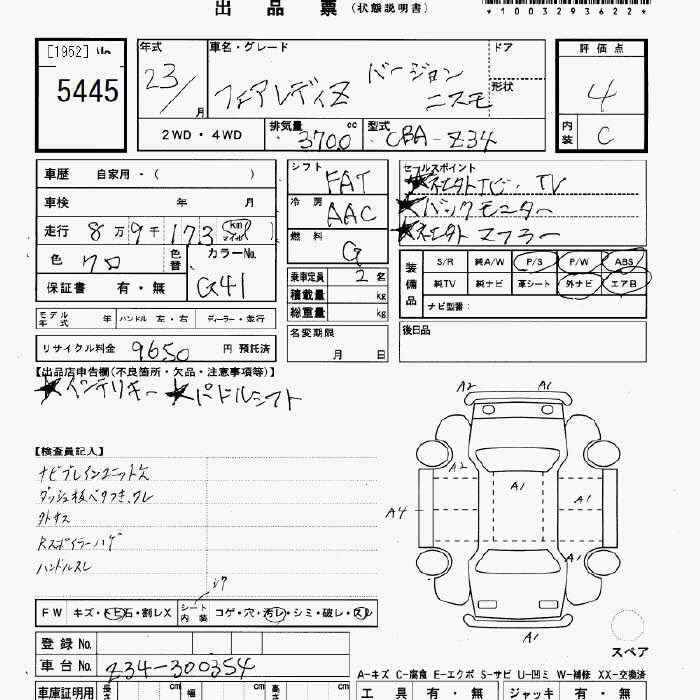 出品票 (状態説明書)
*1003293622**
[1952]
5445
年式 23/ 月
車名・グレード フェアレディZ バージョン ニスモ
ドア
形状
評価点 4
内装 C
2WD・4WD
排気量 3700 cc
型式 CBA-Z34
車歴 自家用・( )
車検 年 月
走行 8万9千173 (km マイル)
色 クロ 色替
カラーNo. G41
保証書 有・無
モデル年式 年 ハンドル 左・右 ディーラー・並行
リサイクル料金 9650 円 預託済
シフト FAT
冷房 AAC
燃料 G
乗車定員 2 名
積載量 kg
総重量 kg
名変期限
月 日
セールスポイント
★社外ナビ・TV
★バックモニター
★社外マフラー
装備品
S/R 純A/W P/S P/W ABS
純TV 純ナビ 革シート 外ナビ エアB
ナビ型番:
後日品
【出品店申告欄(不良箇所・欠品・注意事項等)】
★インテリキー ★パドルシフト
【検査員記入】
ナビブレインユニット欠
ダッシュ板ベタつき、ワレ
外キズ
Rスポイラーハゲ
ハンドルスレ
A2 A1
A2
A1 A1
A4
A1
A1
シワ
FW キズ・トビ石・割レX
シート内装 コゲ・穴・汚レ・シミ・破レ・スレ
スペア
登録No.
車台No. Z34-300354
A-キズ C-腐食 E-エクボ S-サビ U-凹ミ W-補修 XX-交換済
車庫証明用 長さ cm 幅 cm 高さ cm
工具 有・無 ジャッキ 有・無